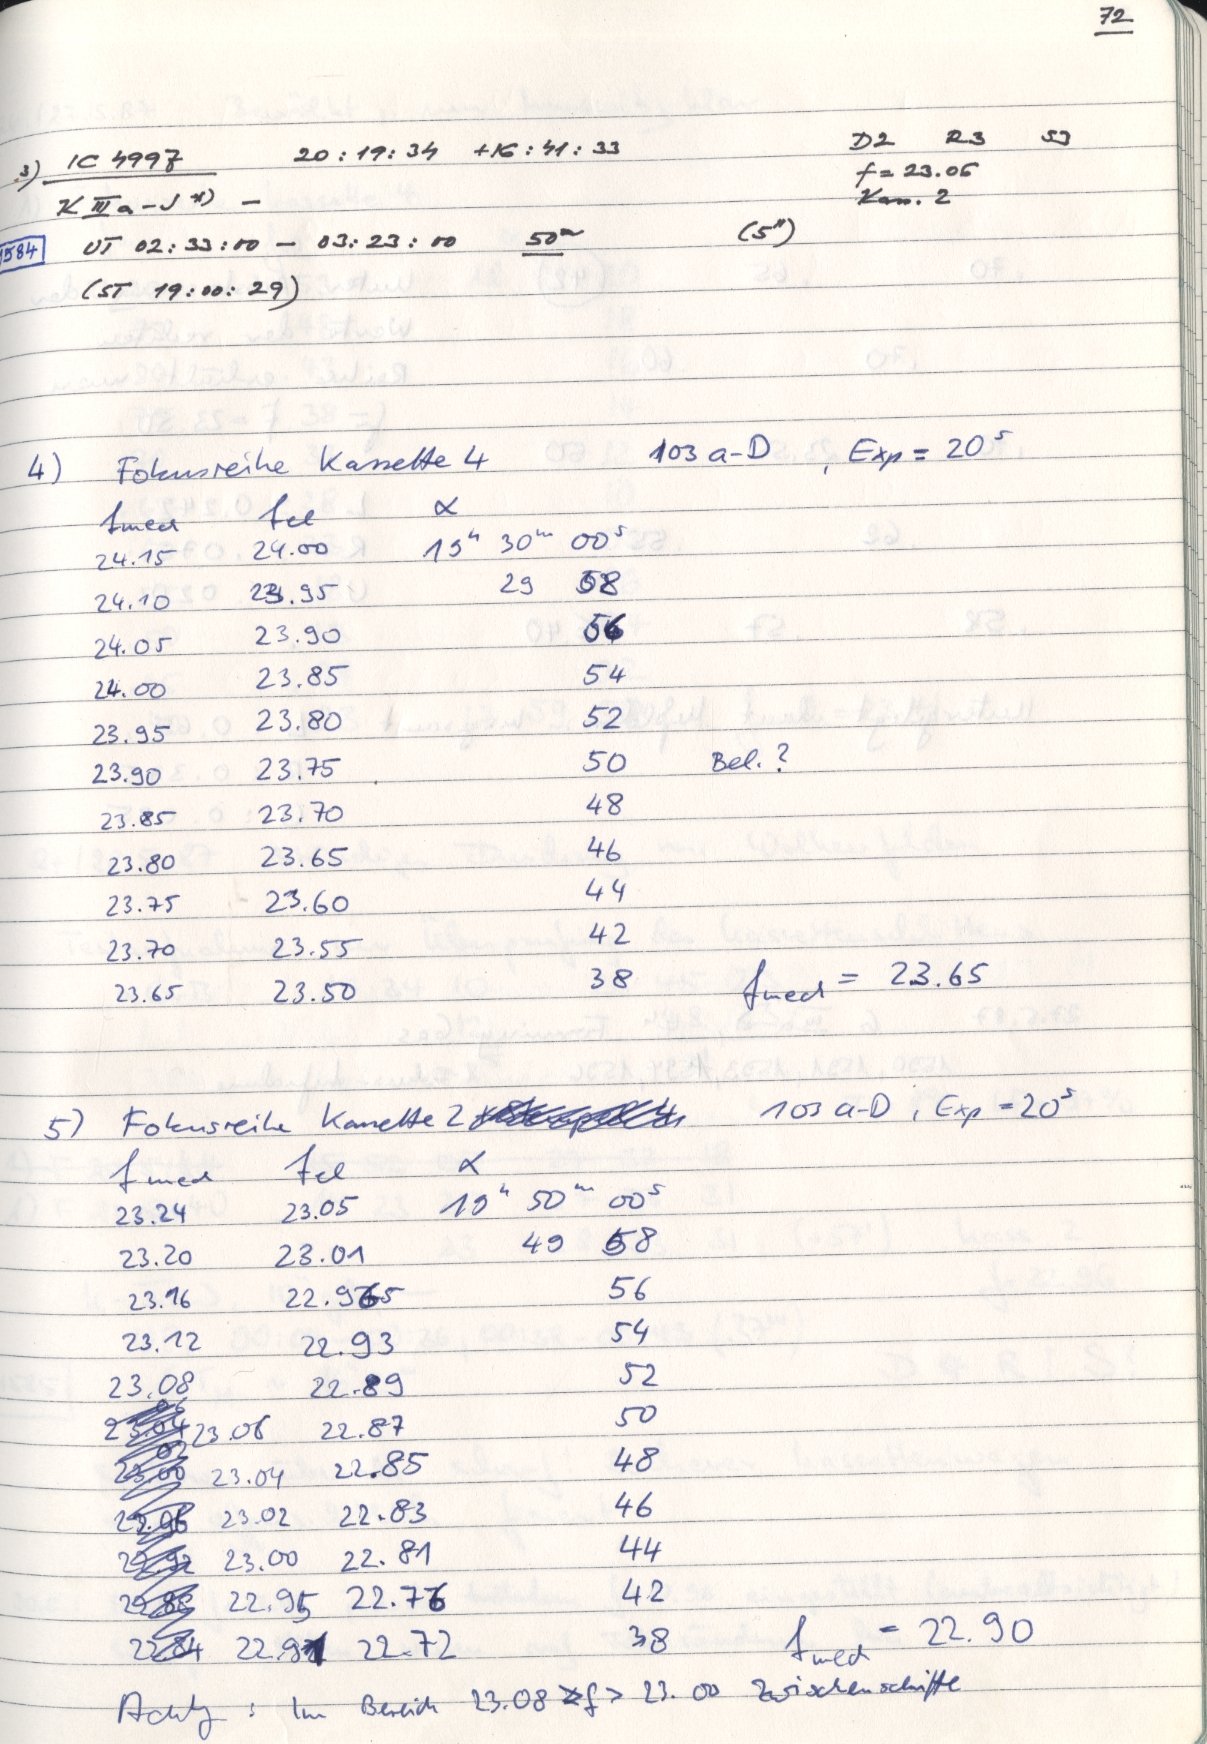 72
3) IC 4997 20:19:34 +16:41:33 D2 R3 S3
f = 23.06
K III a-J *) - Kass. 2
1584 UT 02:33:00 - 03:23:00 50m (5")
(ST 19:00:29)
4) Fokusreihe Kassette 4 103 a-D, Exp = 20s
fmech fel α
24.15 24.00 19h 30m 00s
24.10 23.95 29 58
24.05 23.90 56
24.00 23.85 54
23.95 23.80 52
23.90 23.75 50 Bel.?
23.85 23.70 48
23.80 23.65 46
23.75 23.60 44
23.70 23.55 42
23.65 23.50 38 fmech = 23.65
5) Fokusreihe Kassette 2 103 a-D, Exp = 20s
fmech fel α
23.24 23.05 19h 50m 00s
23.20 23.01 49 58
23.16 22.965 56
23.12 22.93 54
23.08 22.89 52
23.04 23.06 22.87 50
23.00 23.04 22.85 48
22.96 23.02 22.83 46
22.92 23.00 22.81 44
22.88 22.95 22.76 42
22.84 22.91 22.72 38 fmech = 22.90
Achtg: Im Bereich 23.08 > f > 23.00 Zwischenschritte